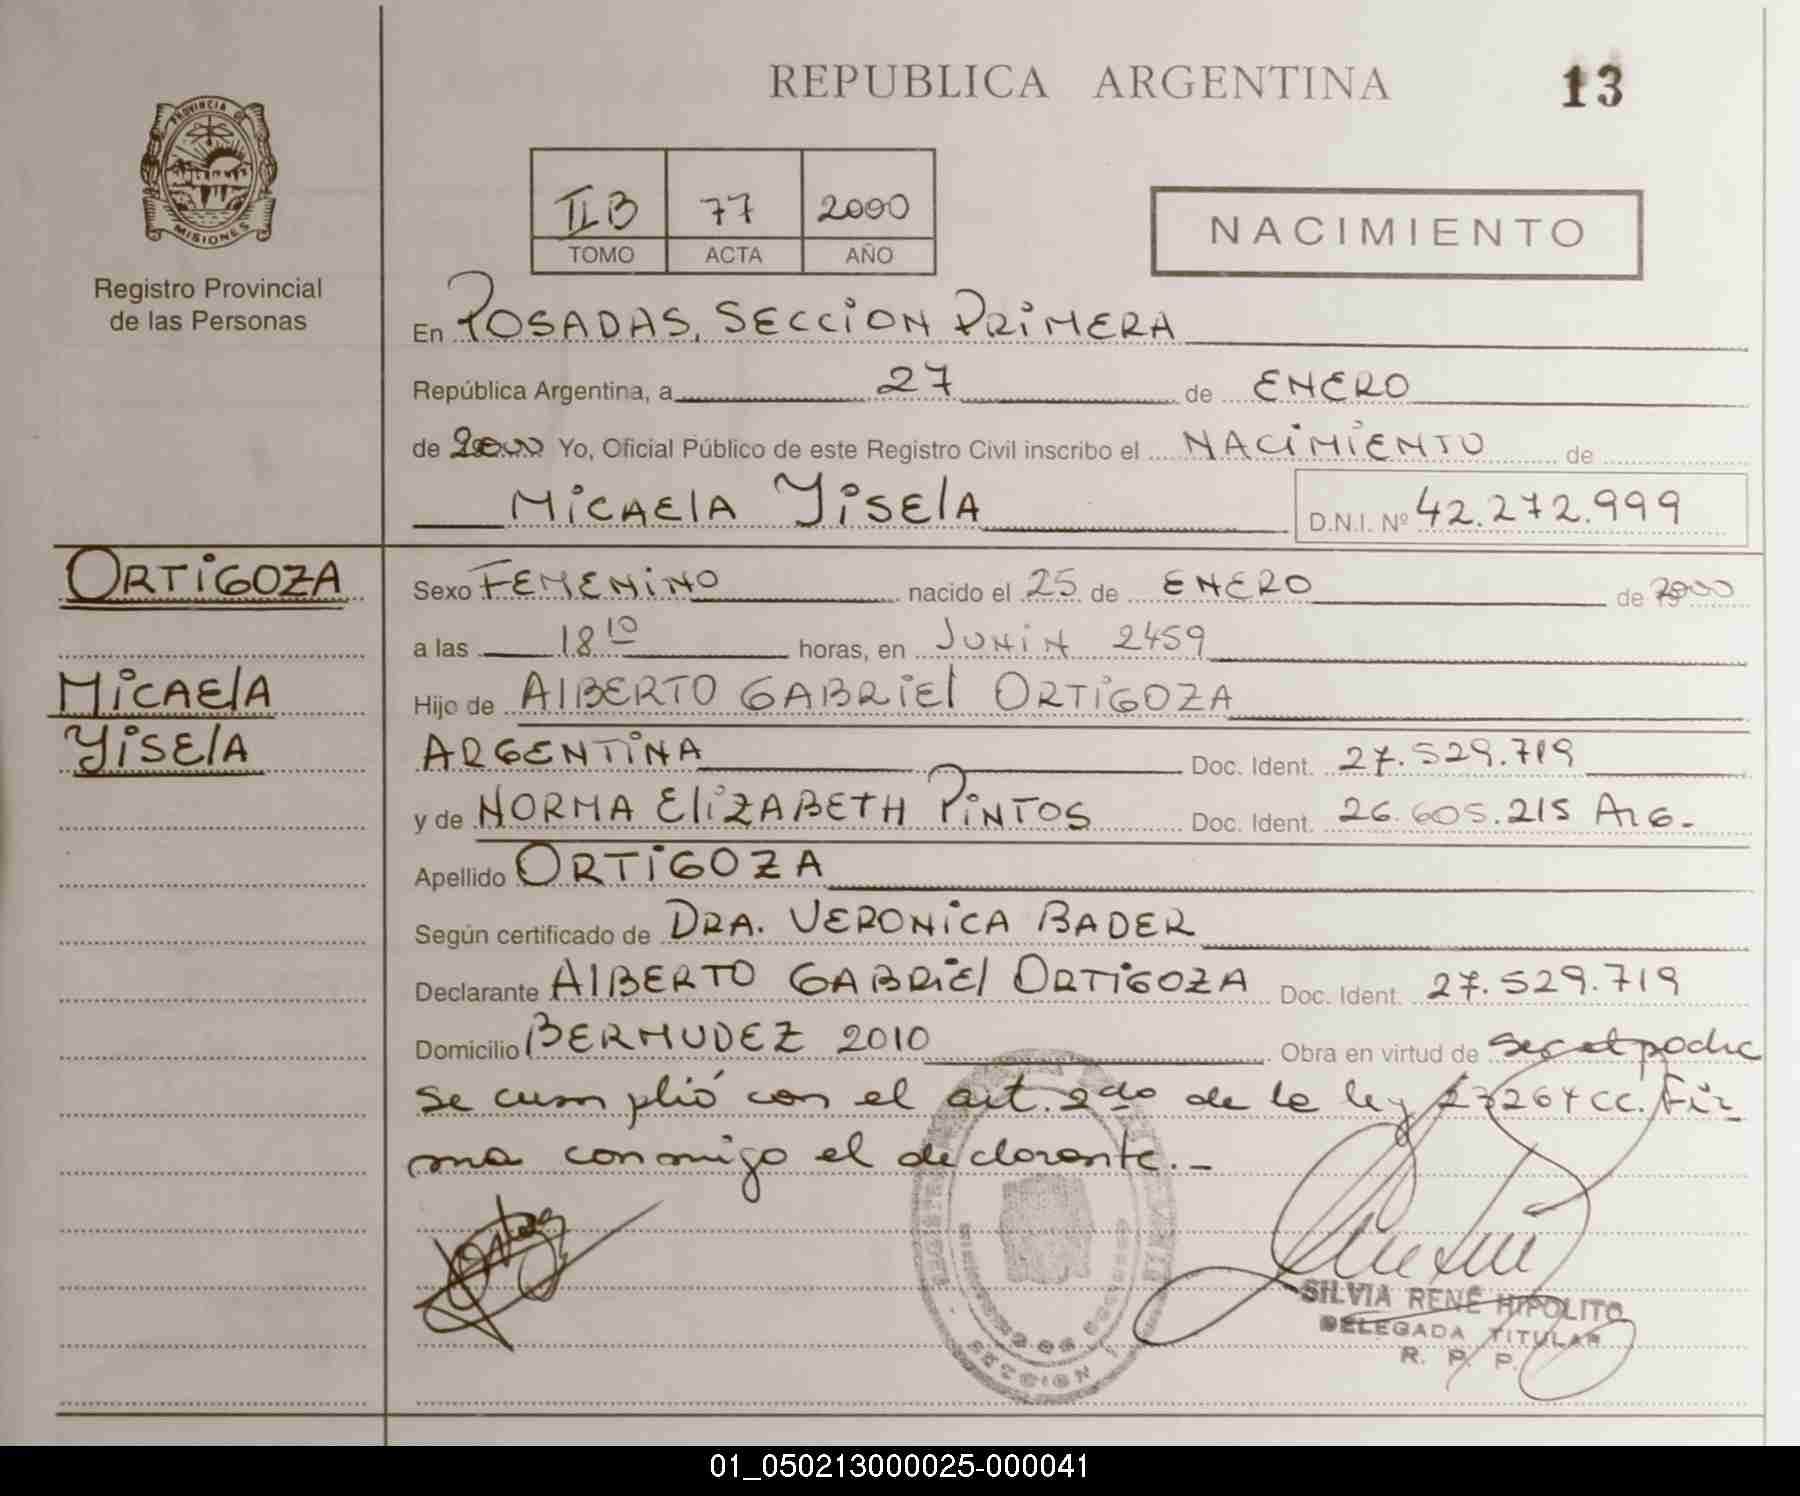 REPUBLICA ARGENTINA
13
PROVINCIA DE
MISIONES
Registro Provincial
de las Personas
II B 77 2000
TOMO ACTA AÑO
NACIMIENTO
En POSADAS, SECCION PRIMERA
República Argentina, a 27 de ENERO
de 2000 Yo, Oficial Público de este Registro Civil inscribo el NACIMIENTO de
MICAELA YISELA D.N.I. Nº 42.272.999
ORTIGOZA
MICAELA
YISELA
Sexo FEMENINO nacido el 25 de ENERO de 2000
a las 18 10 horas, en JUNIN 2459
Hijo de ALBERTO GABRIEL ORTIGOZA
ARGENTINA Doc. Ident. 27.529.719
y de NORMA ELIZABETH PINTOS Doc. Ident. 26.605.215 ARG.-
Apellido ORTIGOZA
Según certificado de DRA. VERONICA BADER
Declarante ALBERTO GABRIEL ORTIGOZA Doc. Ident. 27.529.719
Domicilio BERMUDEZ 2010 Obra en virtud de
se cumplió con el art. 2do de la ley 23264 CC. Fir
ma conmigo el declarante.-
SILVIA RENÉ HIPOLITO
DELEGADA TITULAR
R. P. P.
SECCION
01_050213000025-000041